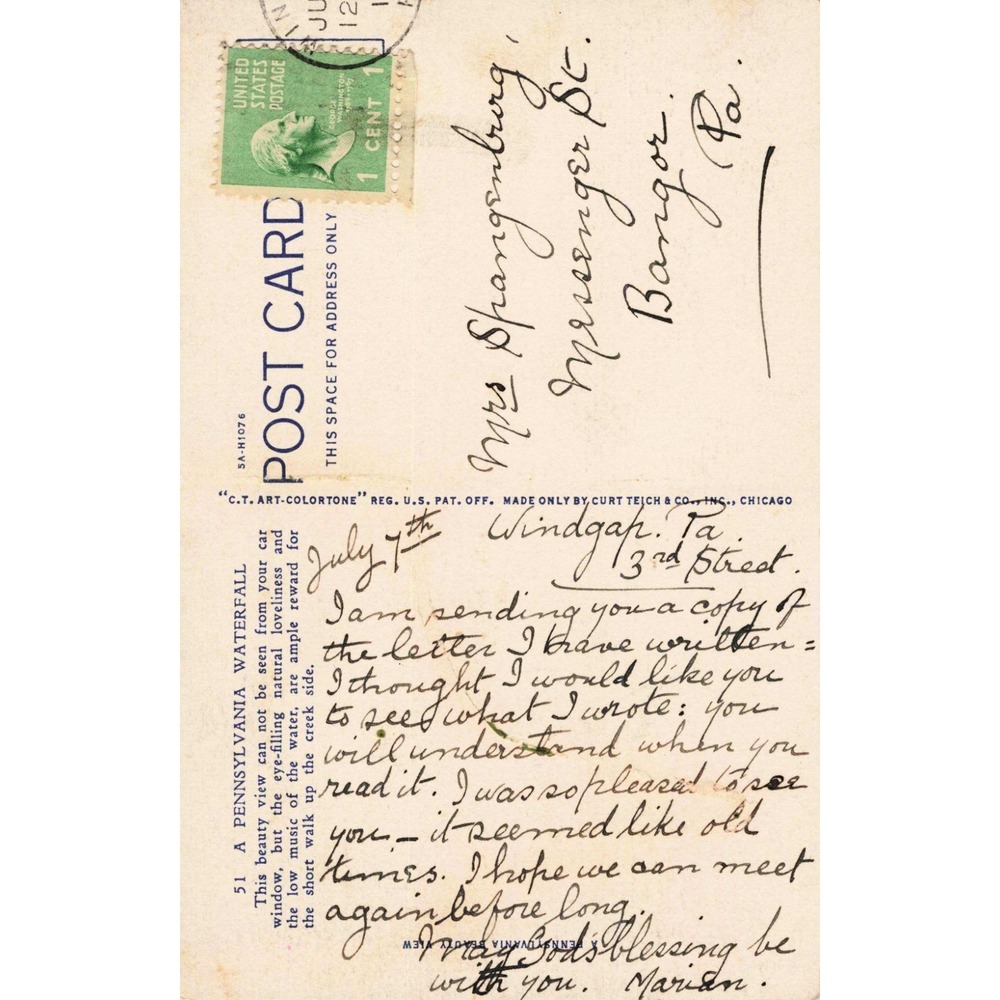 UNITED
STATES
POSTAGE
GEORGE
WASHINGTON
1 CENT 1
5A-H1076
POST CARD
THIS SPACE FOR ADDRESS ONLY
Mrs Spangenburg
Messenger St.
Bangor.
Pa.
"C.T. ART-COLORTONE" REG. U.S. PAT. OFF. MADE ONLY BY CURT TEICH & CO., INC., CHICAGO
51 A PENNSYLVANIA WATERFALL
This beauty view can not be seen from your car
window, but the eye-filling natural loveliness and
the low music of the water, are ample reward for
the short walk up the creek side.
July 7th
Windgap. Pa.
3rd Street.
I am sending you a copy of
the letter I have written =
I thought I would like you
to see what I wrote: you
will understand when you
read it. I was so pleased to see
you — it seemed like old
times. I hope we can meet
again before long.
May God's blessing be
with you. Marian.
A PENNSYLVANIA BEAUTY VIEW